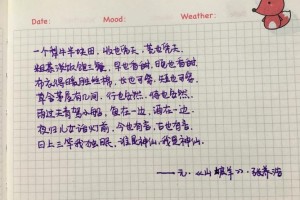 Date: Mood: Weather:
一个犁牛半块田，收也凭天，荒也凭天
粗茶淡饭饱三餐，早也香甜，晚也香甜
布衣得暖胜丝棉，长也可穿，短也可穿
草舍茅屋有几间，行也安然，待也安然
雨过天青驾小船，鱼在一边，酒在一边
夜归儿女话灯前，今也有言，古也有言
日上三竿我独眠，谁是神仙，我是神仙
——元·《山坡羊》·张养浩